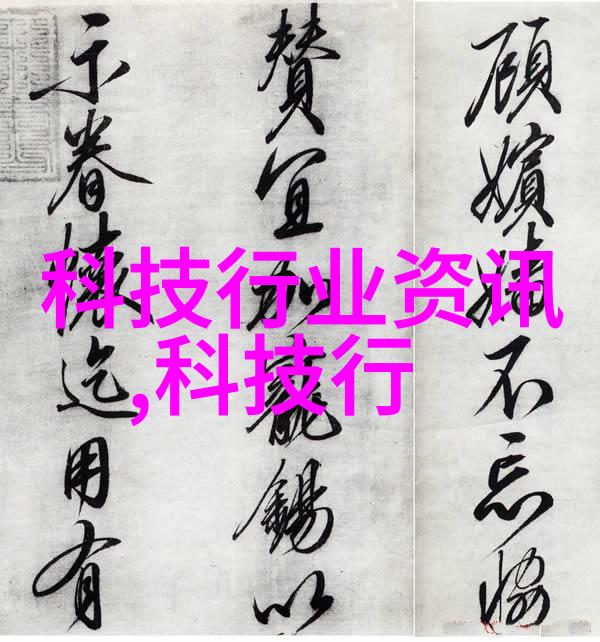 顧嬪不忘恊
贊宜加寵錫以
示眷懷迄用有
科技行业资讯
,科技行